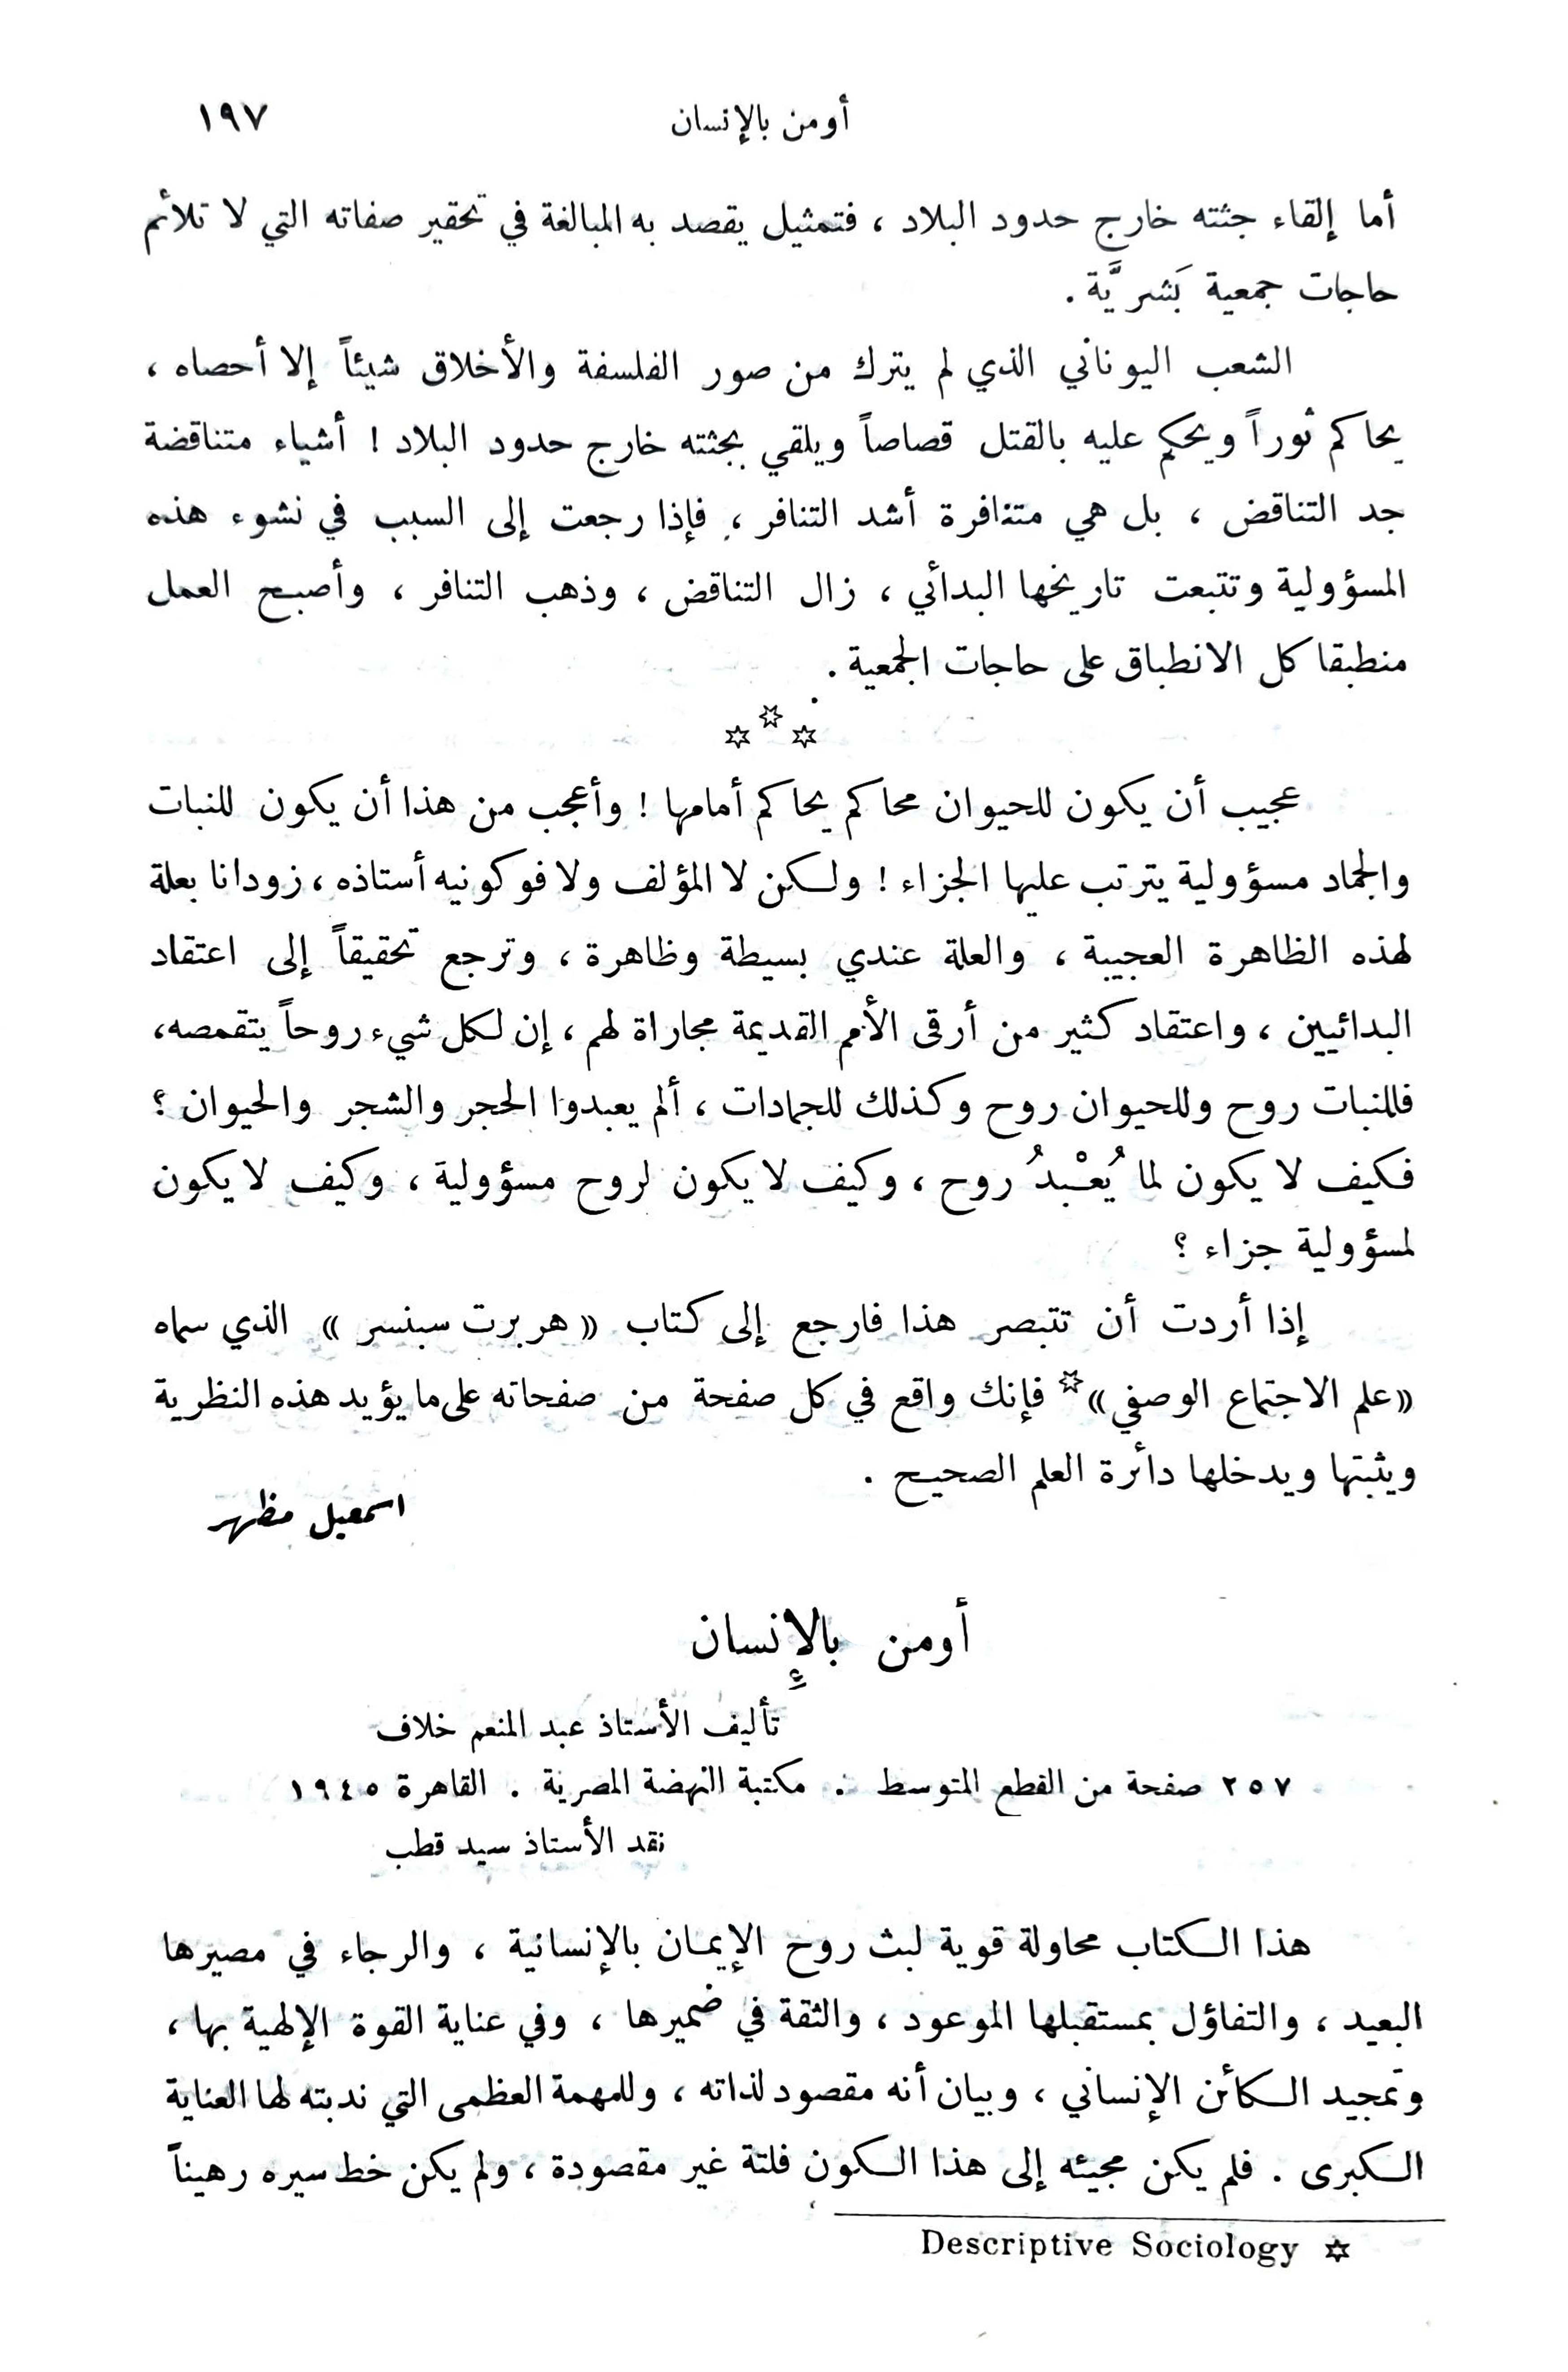 أومن بالإنسان ١٩٧
أما إلقاء جثته خارج حدود البلاد ، فتمثيل يقصد به المبالغة في تحقير صفاته التي لا تلائم
حاجات جمعية بَشريَّة .
الشعب اليوناني الذي لم يترك من صور الفلسفة والأخلاق شيئاً إلا أحصاه ،
يحاكم ثوراً ويحكم عليه بالقتل قصاصاً ويلقي بجثته خارج حدود البلاد ! أشياء متناقضة
جد التناقض ، بل هي متنافرة أشد التنافر ، فإذا رجعت إلى السبب في نشوء هذه
المسؤولية وتتبعت تاريخها البدائي ، زال التناقض ، وذهب التنافر ، وأصبح العمل
منطبقا كل الانطباق على حاجات الجمعية .
☆☆☆
عجيب أن يكون للحيوان محاكم يحاكم أمامها ! وأعجب من هذا أن يكون للنبات
والجماد مسؤولية يترتب عليها الجزاء ! ولكن لا المؤلف ولا فوكونيه أستاذه ، زودانا بعلة
لهذه الظاهرة العجيبة ، والعلة عندي بسيطة وظاهرة ، وترجع تحقيقاً إلى اعتقاد
البدائيين ، واعتقاد كثير من أرقى الأمم القديمة مجاراة لهم ، إن لكل شيء روحاً يتقمصه،
فللنبات روح وللحيوان روح وكذلك للجمادات ، ألم يعبدوا الحجر والشجر والحيوان ؟
فكيف لا يكون لما يُعْبدُ روح ، وكيف لا يكون لروح مسؤولية ، وكيف لا يكون
لمسؤولية جزاء ؟
إذا أردت أن تتبصر هذا فارجع إلى كتاب « هربرت سبنسر » الذي سماه
«علم الاجتماع الوصفي»☆ فإنك واقع في كل صفحة من صفحاته على ما يؤيد هذه النظرية
ويثبتها ويدخلها دائرة العلم الصحيح .
اسمعيل مظهر
أومن بالإنسان
تأليف الأستاذ عبد المنعم خلاف
٢٥٧ صفحة من القطع المتوسط . مكتبة النهضة المصرية . القاهرة ١٩٤٥
نقد الأستاذ سيد قطب
هذا الكتاب محاولة قوية لبث روح الإيمان بالإنسانية ، والرجاء في مصيرها
البعيد ، والتفاؤل بمستقبلها الموعود ، والثقة في ضميرها ، وفي عناية القوة الإلهية بها ،
وتمجيد الكائن الإنساني ، وبيان أنه مقصود لذاته ، وللمهمة العظمى التي ندبته لها العناية
الكبرى . فلم يكن مجيئه إلى هذا الكون فلتة غير مقصودة ، ولم يكن خط سيره رهيناً
☆ Descriptive Sociology